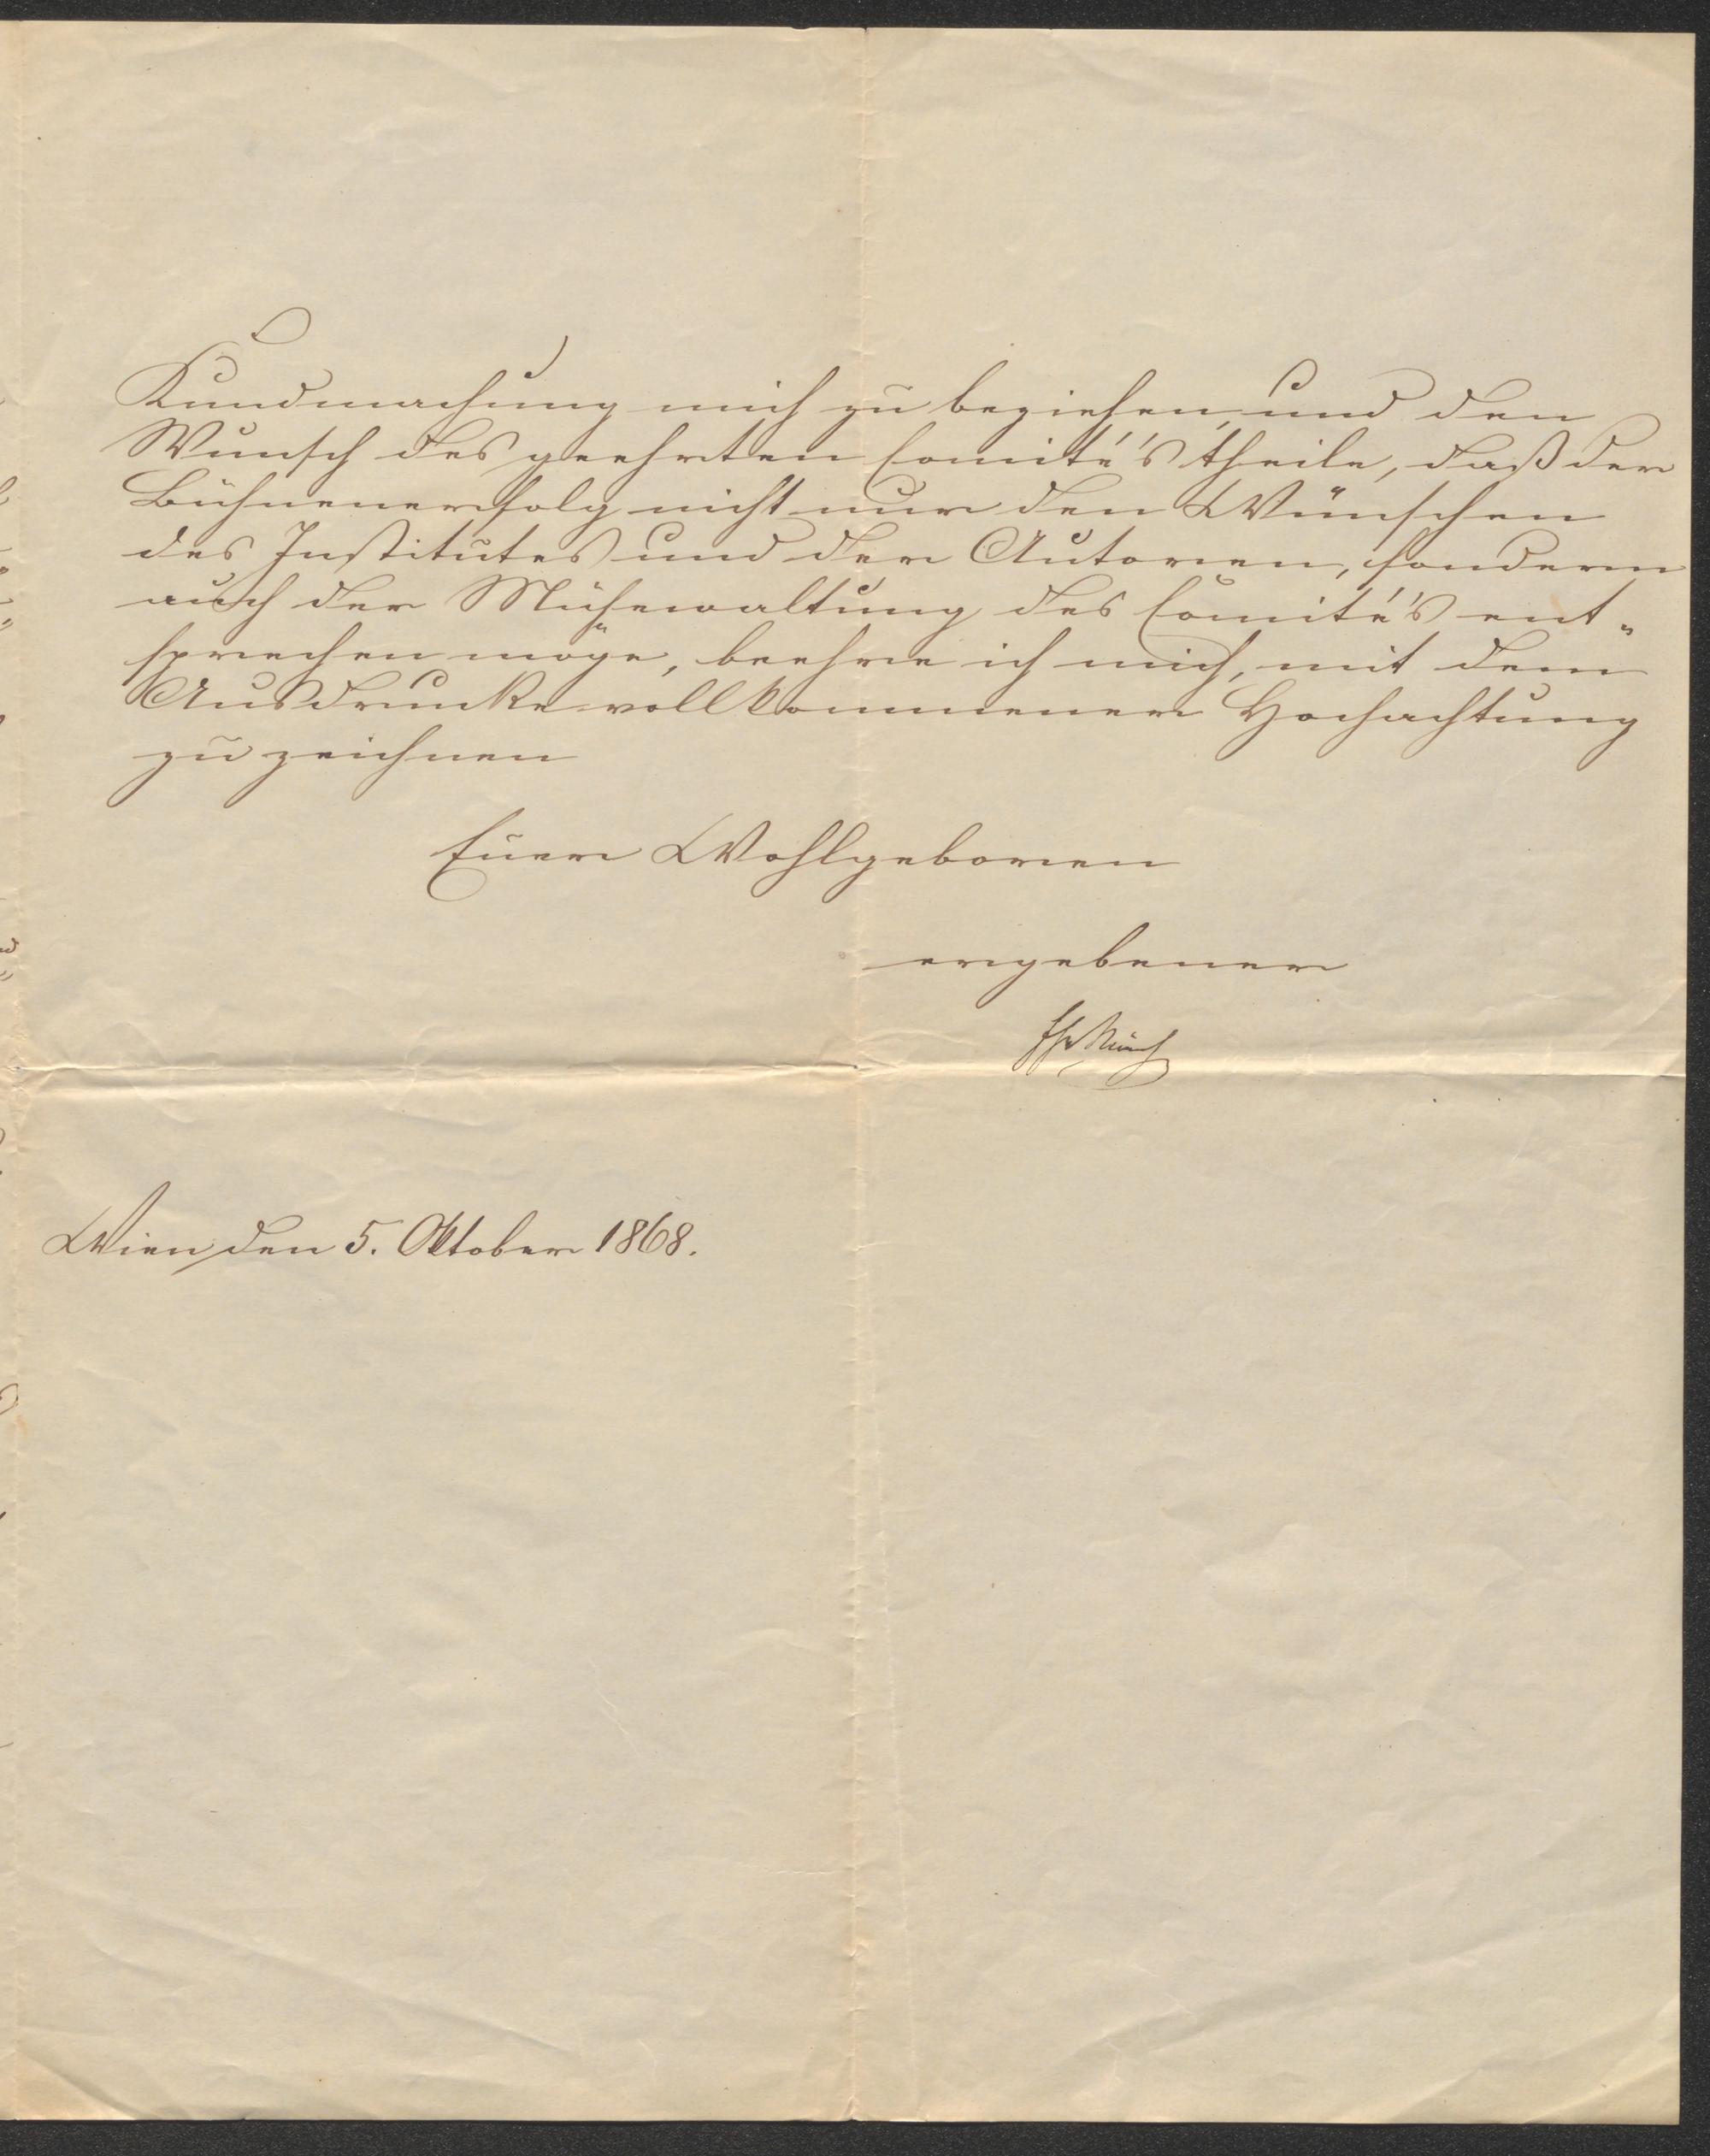 Kundmachung mich zu beziehen, und den
Wunsch des geehrten Comité's theile, daß der
Bühnenerfolg nicht nur den Wünschen
des Institutes und der Autoren, sondern
auch der Mühewaltung des Comité's ent„
sprechen möge, beehre ich mich, mit dem
Ausdrucke vollkommener Hochachtung
zu zeichnen
Euer Wohlgeboren
ergebener
Wien den 5. Oktober 1868.